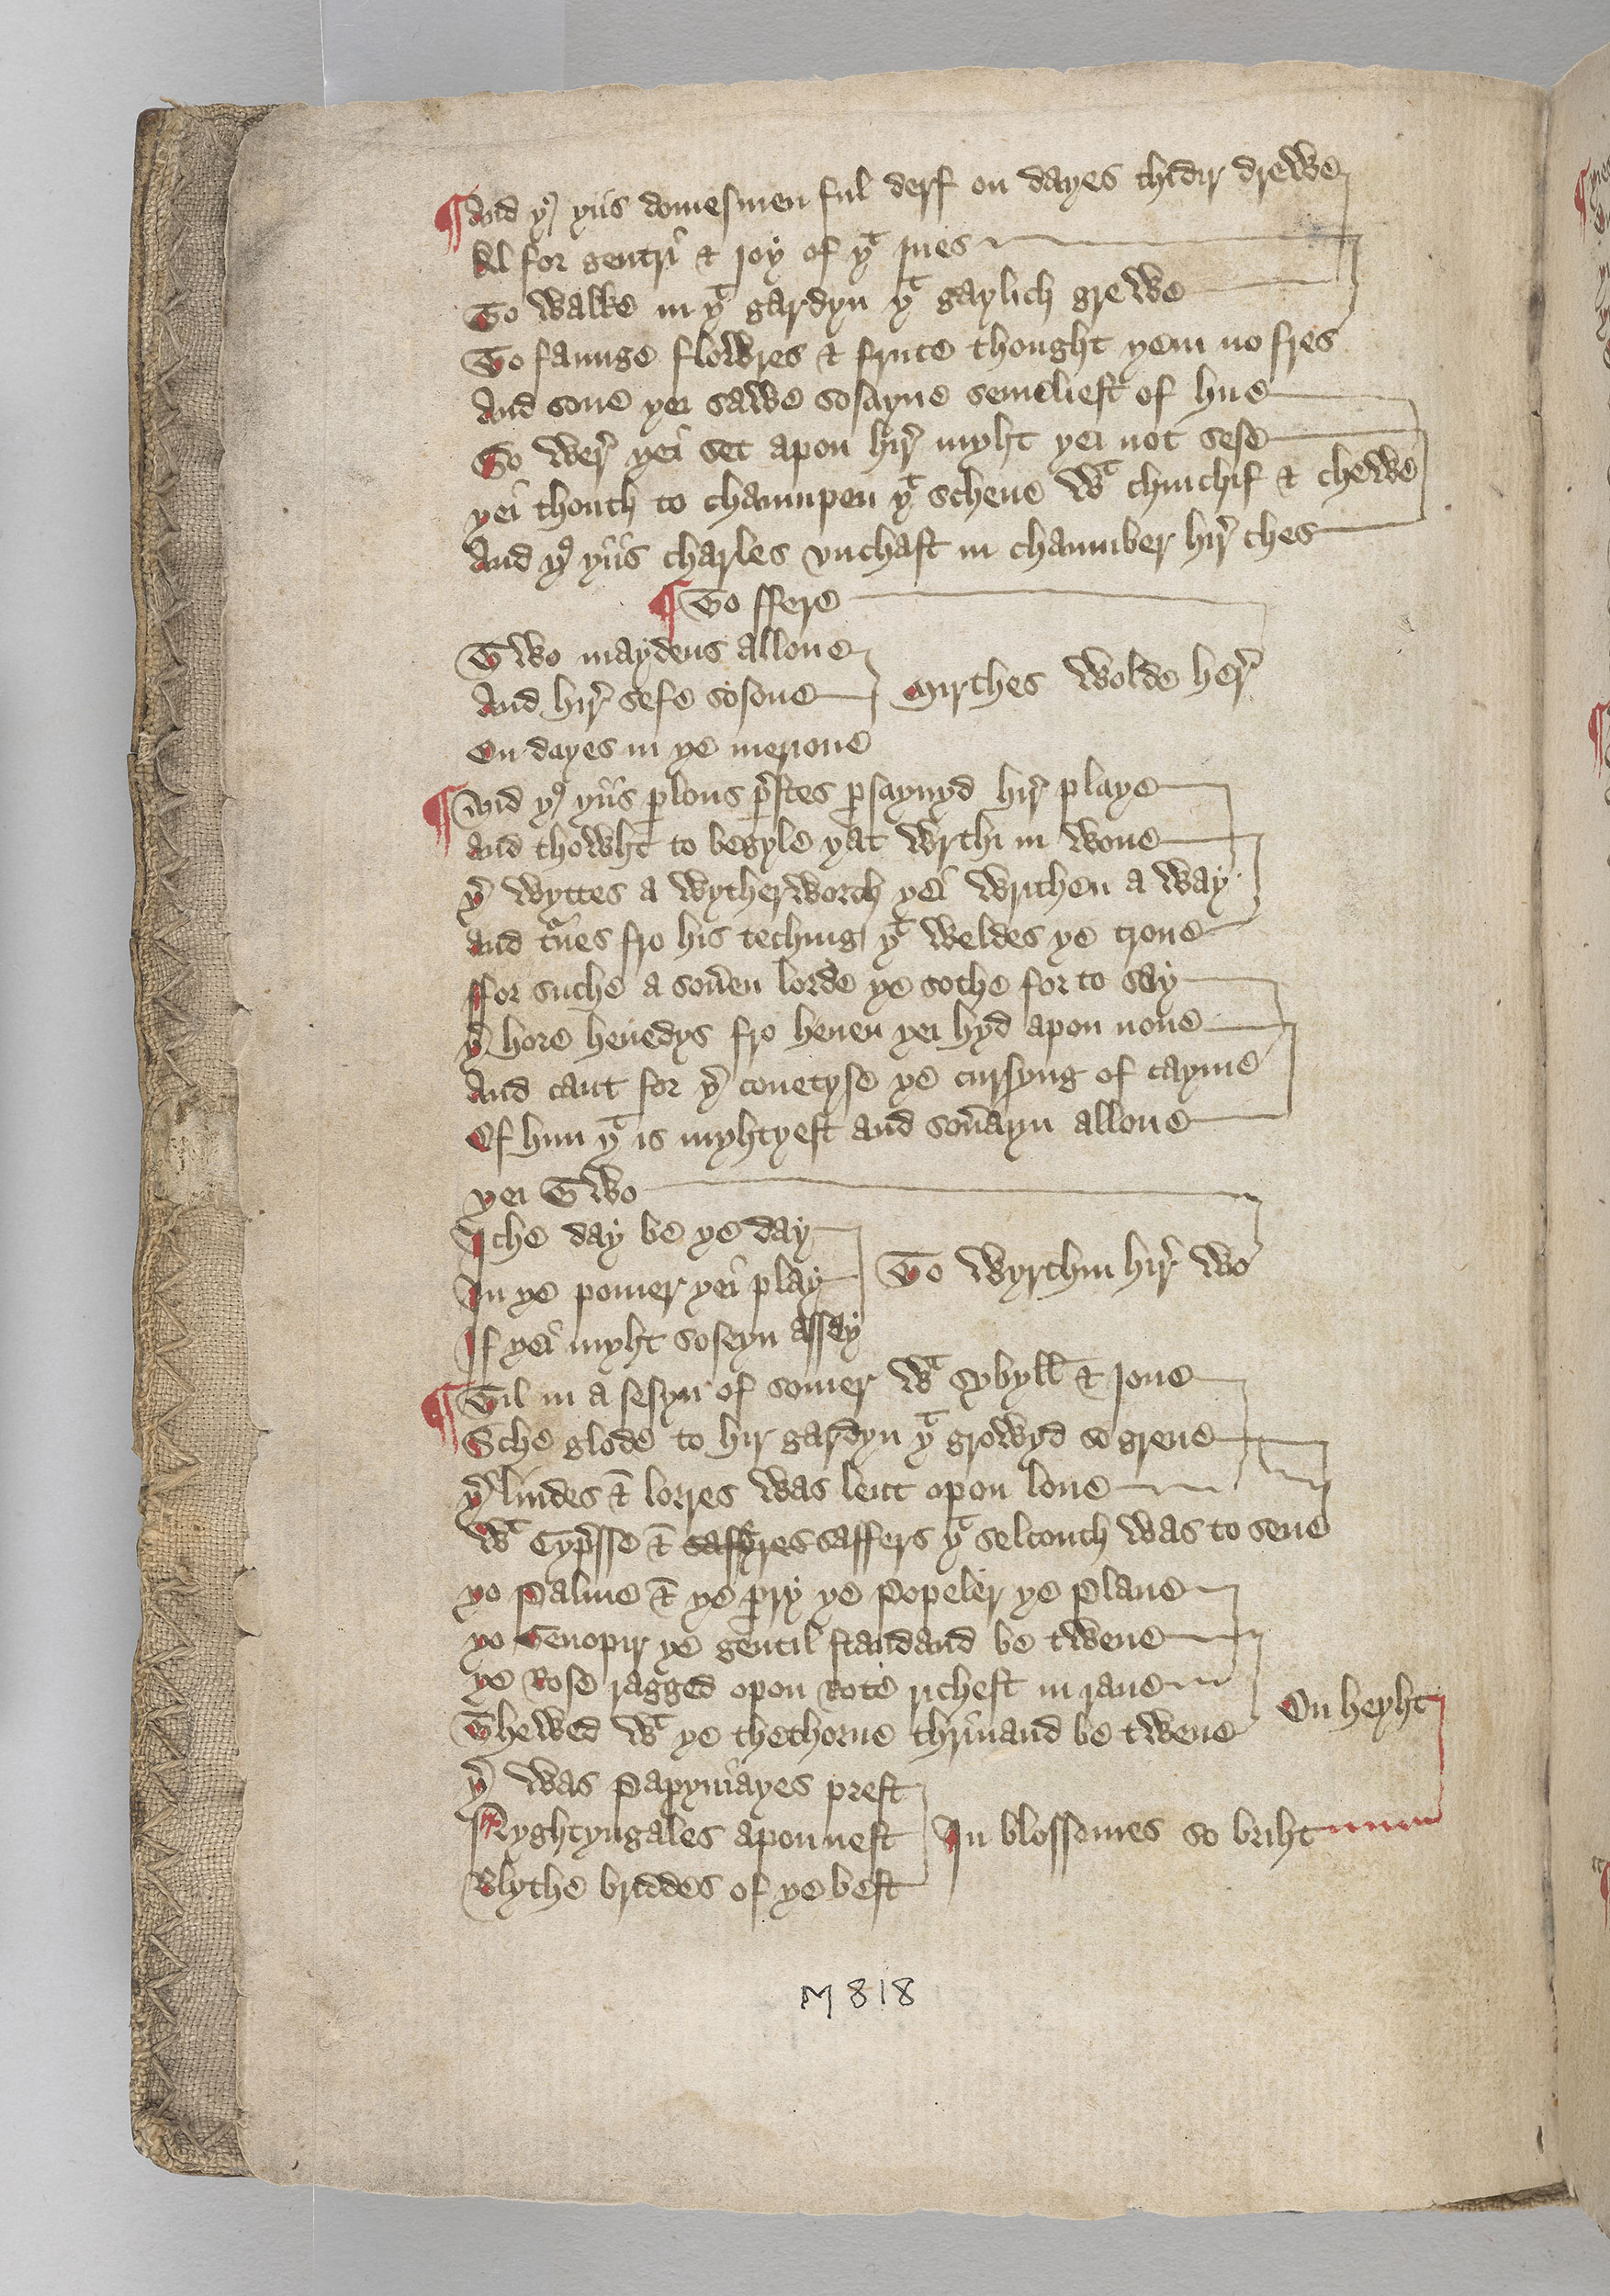 ¶And yᵗ yiis domesmen ful derf on dayes thidir drewe
Al for gentri & joy of yᵗ jues
To walke in yᵗ gardyn yᵗ gaylich grewe
To faunge flowres & frute thought yem no fres
And sone yei sawe sosayne semeliest of hue
So wer' yei set apon hir' myht yei not sese
yei thouth to chaumpen yᵗ schene wᵗ chinchif & chewe
And yᵗ yiis charles vnchast in chaumber hir' ches
¶To ffere
Two maydens allone
And hir' sefe sosone
Mirthes wolde her'
On dayes in ye merione
¶And yᵗ yiis plous p'stes psaynyd hir' playe
And thowht to begyle yat wrthi in wone
y' wyttes a wytherworth yei writhen a way
And t'nes fro his teching yᵗ weldes ye trone
ffor suche a sou'en lorde ye sothe for to say
y' hore heuedys fro heuen yei hyd apon none
And caut for y' couetyse ye cursyng of cayme
Of hum yᵗ is myhtyest and sou'ayn allone
yei Two
Iche day be ye day
In ye pomer yei play
To wyrthin hir' wo
If yei myht soseyn assay
¶Til in a sesyn of somer wᵗ Sybyll & Jone
Sche glode to hir gardyn yᵗ growyd so grene
y' lindes & lorres was lent opon lone
wᵗ Cyp'sse & saffyres saffers yᵗ selcouth was to sene
ye Palme & ye pry ye Popeler ye Plane
ye Genopir ye gentil standand be twene
ye Rose ragged opon Rote richest in rane
Thewed wᵗ ye thethorne thriuand be twene
On heyht
y' was Papyniayes prest
Nyghtyngales apon nest
In blossomes so briht
Blythe briddes of ye best
M 818